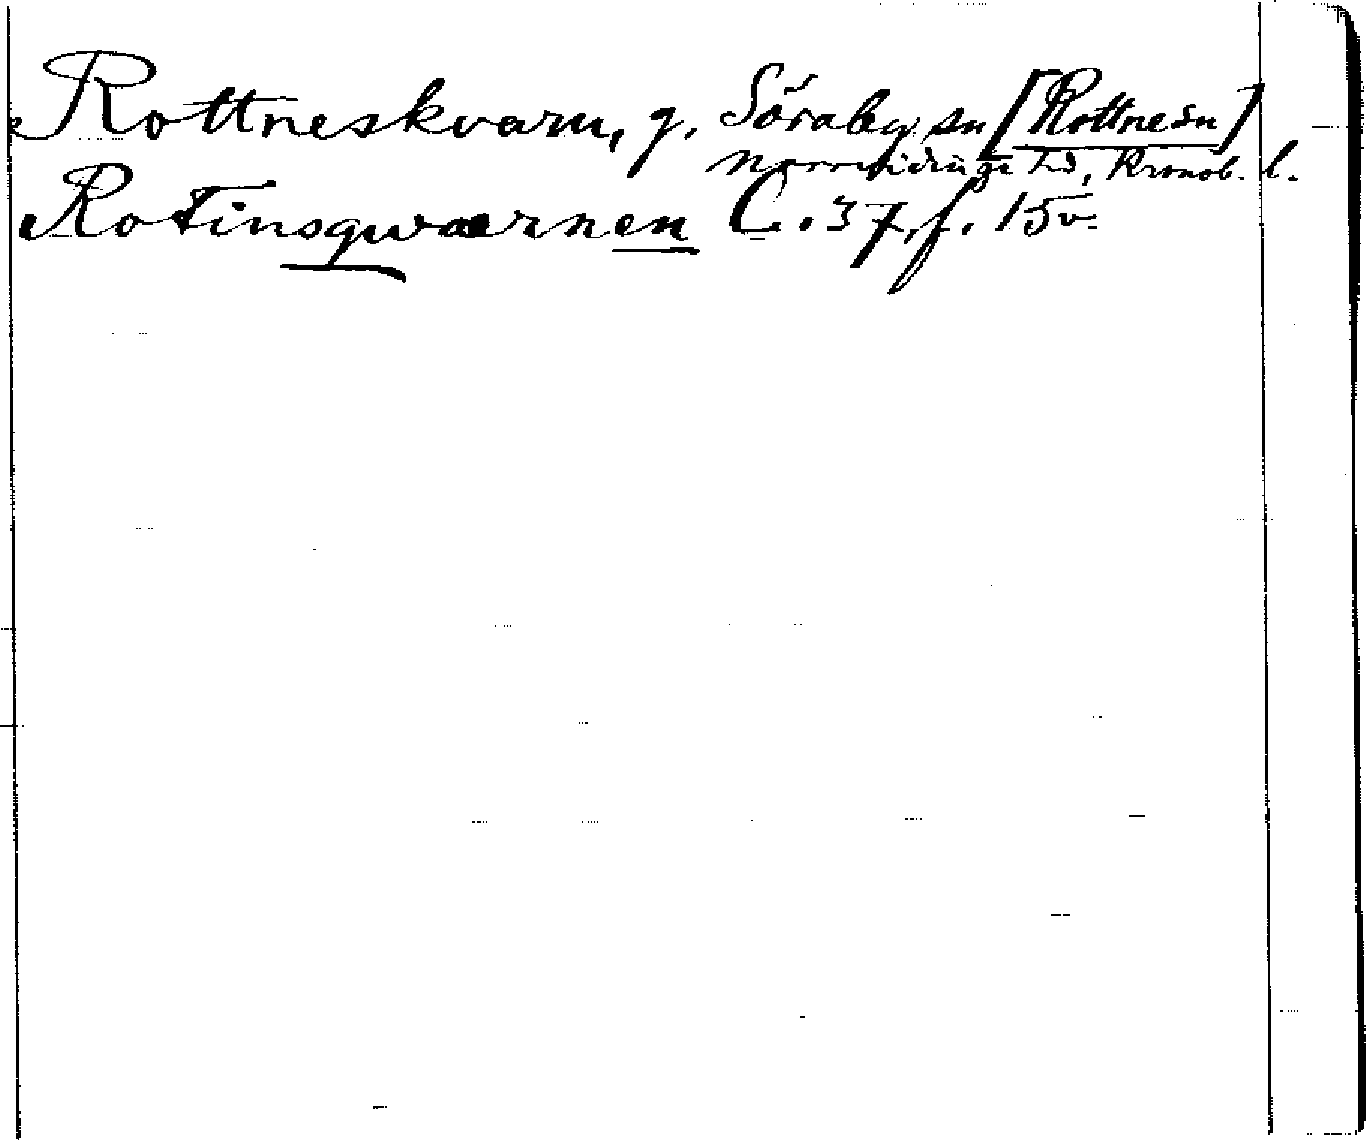 Rottneskvarn, g. Söraby sn [Rottne sn]
Norrvidinge hd, Kronob. l.
Rotinsqwærnen C. 37, f. 15v.